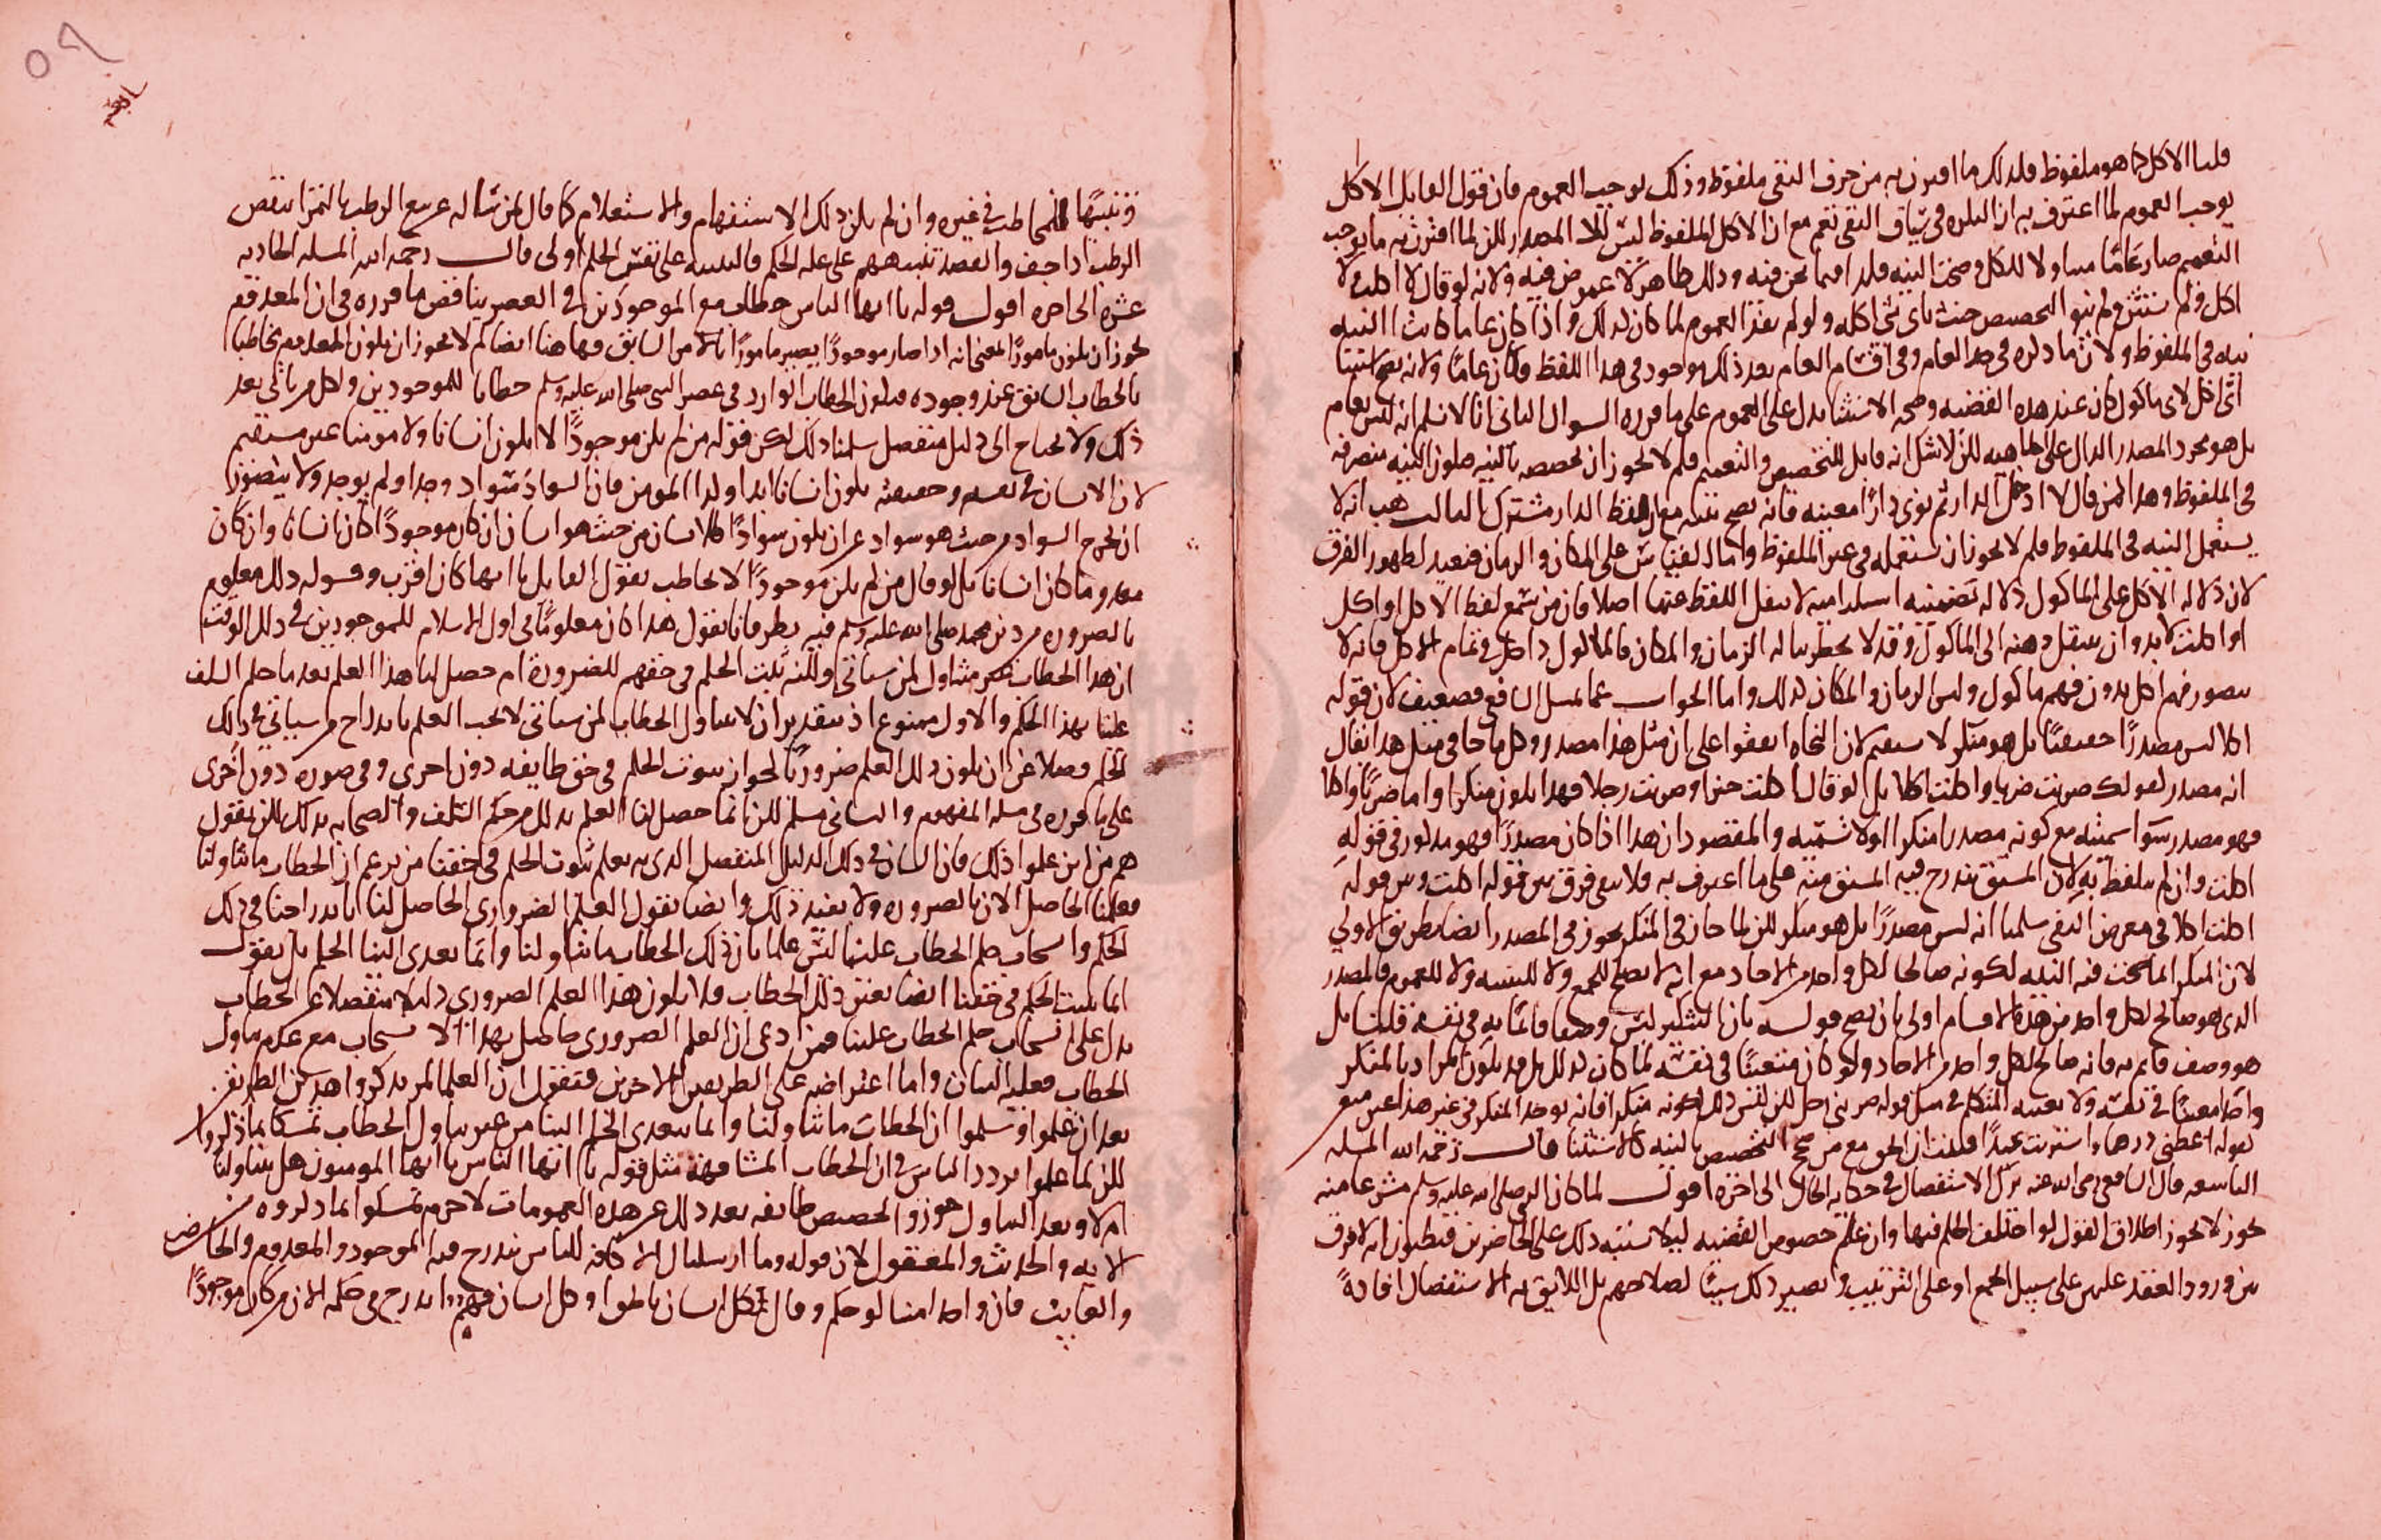 قلنا الاكل كما هو ملفوظ فلذلك ما اقترن به من حرف النفي ملفوظ وذلك يوجب العموم فان قول القايل لا اكل
يوجب العموم لما اعترف به ان النكره في سياق النفي تعم مع ان الاكل الملفوظ ليس الا المصدر لكن لما اقترن به ما يوجب
التعميم صار عاما متناولا للكل وصحت النيه فلذا فيما نحن فيه وذلك ظاهر لا غموض فيه ولانه لو قال لا اكلت ولا
اكل ولم يستثن ولم ينو التخصيص حنث باي شي اكله ولو لم يفد العموم لما كان كذلك واذا كان عاما كانت النيه
نيه في الملفوظ ولان ما ذكره في حد العام وفي اقسام العام بعد ذلك موجود في هذا اللفظ فكان عاما ولانه يصح استثنا
اي اكل لاي ماكول كان عند هذه القضيه وصحه الاستثنا يدل على العموم على ما قرره السوال الثاني انا لا نسلم انه ليس بعام
بل هو مجرد المصدر الدال على الماهيه لكن لا شك انه قابل للتخصيص والتعميم فلم لا يجوز ان تخصصه بالنيه فتكون النيه منصرفه
في الملفوظ وهذا كمن قال لا ادخل الدار ثم نوى دارا معينه فانه يصح نيته مع ان لفظ الدار مشترك الثالث هب انه لا
يستعمل النيه في الملفوظ فلم لا يجوز ان تستعمله في غير الملفوظ واما القياس على المكان والزمان فبعيد لظهور الفرق
لان دلاله الاكل على الماكول دلاله تضمنيه استلزاميه لا ينفك اللفظ عنها اصلا فان من سمع لفظ الاكل او اكل
او اكلت لا بد وان ينتقل ذهنه الى الماكول وقد لا يخطر بباله الزمان والمكان فالماكول داخل في تمام الاكل فانه لا
يتصور فهم اكل بدون فهم ماكول وليس الزمان والمكان كذلك واما الجواب عما تمسك الشافعي فضعيف لان قوله
اكلا ليس مصدرا حقيقيا بل هو منكر لا يستقيم لان النحاه اتفقوا على ان مثل هذا مصدر وكل ما جا في مثل هذا يقال
انه مصدر كقولك ضربت ضربا واكلت اكلا بل لو قال اكلت خبزا وضربت رجلا فهذا يكون منكرا واما ضربا واكلا
فهو مصدر سوا سميته مع كونه مصدرا منكرا او لا سميته والمقصود ان هذا اذا كان مصدرا فهو مذكور في قوله
اكلت وان لم يتلفظ به لان المشتق يندرج فيه المشتق منه على ما اعترف به فلا يبقى فرق بين قوله اكلت وبين قوله
اكلت اكلا في معرض النفي سلمنا انه ليس مصدرا بل هو منكر لكن لما جاز في المنكر يجوز في المصدر ايضا بطريق الاولى
لان المنكر انما صحت فيه النيه لكونه صالحا لكل واحد من الاحاد مع انه لا يصلح للجمع ولا للتثنيه ولا للعموم فالمصدر
الذي هو صالح لكل واحد من هذه الاقسام اولى بان يصح قوله بان التنكير ليس وصفا قائما به في نفسه قلنا بل
هو وصف قائم به فانه صالح لكل واحد من الاحاد ولو كان متعينا في نفسه لما كان كذلك بل قد يكون المراد بالمنكر
واحدا معينا في نفسه ولا يعينه المتكلم في مثل قوله ضربني رجل لكن ليس ذلك لكونه منكرا فانه يوجد المنكر في غير هذا غير معين
كقوله اعطني درهما واشتريت عبدا فثبت ان الحق مع من صحح التخصيص بالنيه كالاستثنا قال رحمه الله المسله
التاسعه قال الشافعي رضي الله عنه ترك الاستفصال في حكايه الحال الى اخره اقول لما كان النبي صلى الله عليه وسلم مشرعا منه
يجوز لا يجوز اطلاق القول لو اختلف الحكم فيها وان علم خصوص القضيه ليلا يشتبه ذلك على الحاضرين فيظنون انه لا فرق
بين ورود العقد عليهن على سبيل الجمع او على الترتيب ويصير ذلك سببا لصلاحهم بل اللايق به الاستفصال افادة
٥٩
وتنبيها للمخاطب في غيره وان لم يكن ذلك الاستفهام والاستعلام كما قال لمن ساله عن بيع الرطب بالتمر اينقص
الرطب اذا جف والقصد تنبيههم على عله الحكم فالتنبيه على نفس الحكم اولى قال رحمه الله المسله الحاديه
عشره الى اخره اقول قوله يا ايها الناس خطاب مع الموجودين في العصر يناقض ما قرره في ان المعدوم
يجوز ان يكون مامورا لمعنى انه اذا صار موجودا يصير مامورا بالامر السابق فهاهنا ايضا لم لا يجوز ان يكون المعدوم مخاطبا
بالخطاب السابق عند وجوده فيكون الخطاب الوارد في عصر النبي صلى الله عليه وسلم خطابا للموجودين ولكل من ياتي بعد
ذلك ولا يحتاج الى دليل منفصل سلمنا ذلك لكن قوله من لم يكن موجودا لا يكون انسانا ولا مومنا غير مستقيم
لان الانسان في نفسه وحقيقته يكون انسانا ابدا وكذا المومن فان السواد سواد وجد او لم يوجد ولا يتصور
ان يخرج السواد من حيث هو سواد عن ان يكون سوادا كالانسان من حيث هو انسان ان كان موجودا كان انسانا وان كان
معدوما كان انسانا بل لو قال من لم يكن موجودا لا يخاطب بقول القايل يا ايها كان اقرب وقوله ذلك معلوم
بالضروره من دين محمد صلى الله عليه وسلم فيه نظر فانا نقول هذا كان معلوما في اول الاسلام للموجودين في ذلك الوقت
ان هذا الخطاب غير متناول لمن سياتي ولكنه يثبت الحكم في حقهم للضرورة ام حصل لنا هذا العلم بعد ما حكم السلف
علينا بهذا الحكم والاول ممنوع اذ بتقدير ان لا يتناول الخطاب لمن سياتي لا يجب العلم باندراج من سياتي في ذلك
الحكم فضلا عن ان يكون ذلك العلم ضروريا لجواز ثبوت الحكم في حق طايفه دون اخرى وفي صوره دون اخرى
على ما قرره في مسله المفهوم والثاني مسلم لكن انما حصل لنا العلم بذلك من حكم السلف والصحابه بذلك لكن نقول
هم من اين علموا ذلك فان الشان في ذلك الدليل المنفصل الذي به يعلم ثبوت الحكم في حقنا من يزعم ان الخطاب ما تناولنا
فعلمنا الحاصل الان بالضروره ولا يفيد ذلك وايضا نقول العلم الضروري الحاصل لنا باندراجنا في ذلك
الحكم وانسحاب حكم الخطاب علينا ليس علما بان ذلك الخطاب ما تناولنا وانما تعدى الينا الحكم بل نقول
انما يثبت الحكم في حقنا ايضا بعين ذلك الخطاب فلا يكون هذا العلم الضروري دليلا منفصلا عن الخطاب
يدل على انسحاب حكم الخطاب علينا فمن ادعى ان العلم الضروري حاصل بهذا الانسحاب مع عدم تناول
الخطاب فعليه البيان واما اعتراضه على الطريقين الاخرين فنقول ان العلما لم يذكروا هذين الطريقين
بعد ان علموا وسلموا ان الخطاب ما تناولنا وانما يتعدى الحكم الينا من غير تناول الخطاب تمسكا بما ذكروا
لكن لما علموا تردد الناس في ان الخطاب المشافهة مثل قوله يا ايها الناس يا ايها المومنون هل يتناولنا
ام لا وبعد التناول جوزوا تخصيص طايفه بعد ذلك عن هذه العمومات لا جرم تمسكوا بما ذكروه من
الايه والحديث والمعقول لان قوله وما ارسلناك الا كافه للناس يندرج فيه الموجود والمعدوم والحاضر
والغايب فان واحدا منا لو حكم وقال لكل انسان ناطق وكل انسان اندرج في حكمه الان من كان موجودا